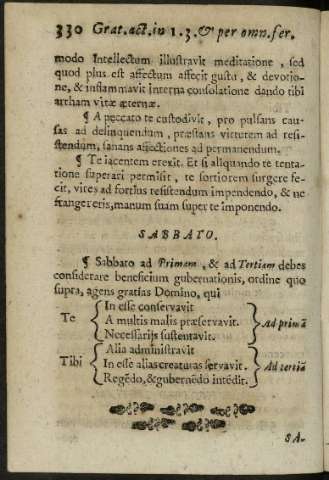 330 Grat. act. in 1. 3. & per omn. fer.
modo Intellectum illustravit meditatione, sed
quod plus est affectum affecit gustu, & devotio-
ne, & inflammavit interna consolatione dando tibi
arrham vitæ æternæ.
¶ A peccato te custodivit, pro pulsans cau-
sas ad delinquendum, præstans virtutem ad resi-
stendum, sanans affectiones ad permanendum.
¶ Te iacentem erexit. Et si aliquando te tenta-
tione superari permisit, te fortiorem surgere fe-
cit, vires ad fortius resistendum impendendo, & ne
frangereris, manum suam super te imponendo.
SABBATO.
¶ Sabbato ad Primam, & ad Tertiam debes
considerare beneficium gubernationis, ordine quo
supra, agens gratias Domino, qui
Te { In esse conservavit
A multis malis præservavit.
Necessarijs sustentavit. } Ad primã
Tibi { Alia administravit
In esse alias creaturas servavit.
Regẽdo, & gubernẽdo intẽdit. } Ad tertiã
SA-